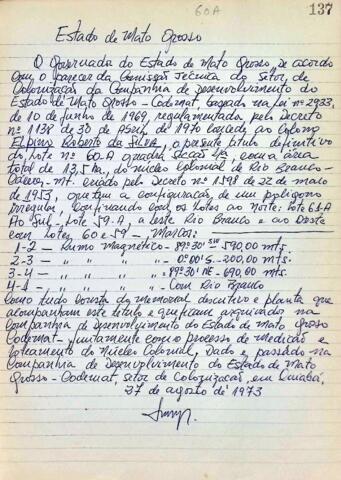 60A
137
Estado de Mato Grosso
O Governador do Estado de Mato Grosso, de acordo
com o parecer da Comissão Técnica do Setor de
Colonização da Companhia de Desenvolvimento do
Estado de Mato Grosso - Codemat, baseado na lei nº 2933,
de 10 de junho de 1969, regulamentada pelo Decreto
nº 1138 de 30 de Abril de 1970 concede ao Colono
Roberto da Silva, o presente titulo definitivo
do lote nº 60.A quadra Secção com a área
total de ha, do núcleo colonial de Rio Branco-
Cáceres-MT. criado pelo Decreto nº 1598 de 22 de maio
de 1953, que tem a configuração de um poligono
irregular. Confinando com os lotes ao Norte: lote 61A
Ao Sul, lote 59.A, a leste Rio Branco e ao Oeste
com lotes 60 e 59 - Marcos:
1-2 - Rumo Magnético - 89º30' SW - 590,00 mts.
2-3 - " " " 0º00' S. - 200,00 mts.
3-4 - " " " 89º30' NE - 690,00 mts.
4-1 - " " " Com Rio Branco
como tudo consta do memorial descritivo e planta que
acompanham este titulo e que ficam arquivados na
Companhia de Desenvolvimento do Estado de Mato Grosso
Codemat - juntamente com o processo de medição e
loteamento do Núcleo Colonial, Dado e passado na
Companhia de Desenvolvimento do Estado de Mato
Grosso - Codemat, Setor de Colonização, em Cuiabá,
27 de agosto de 1973